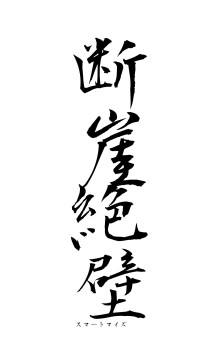 断崖絶壁
スマートマイズ